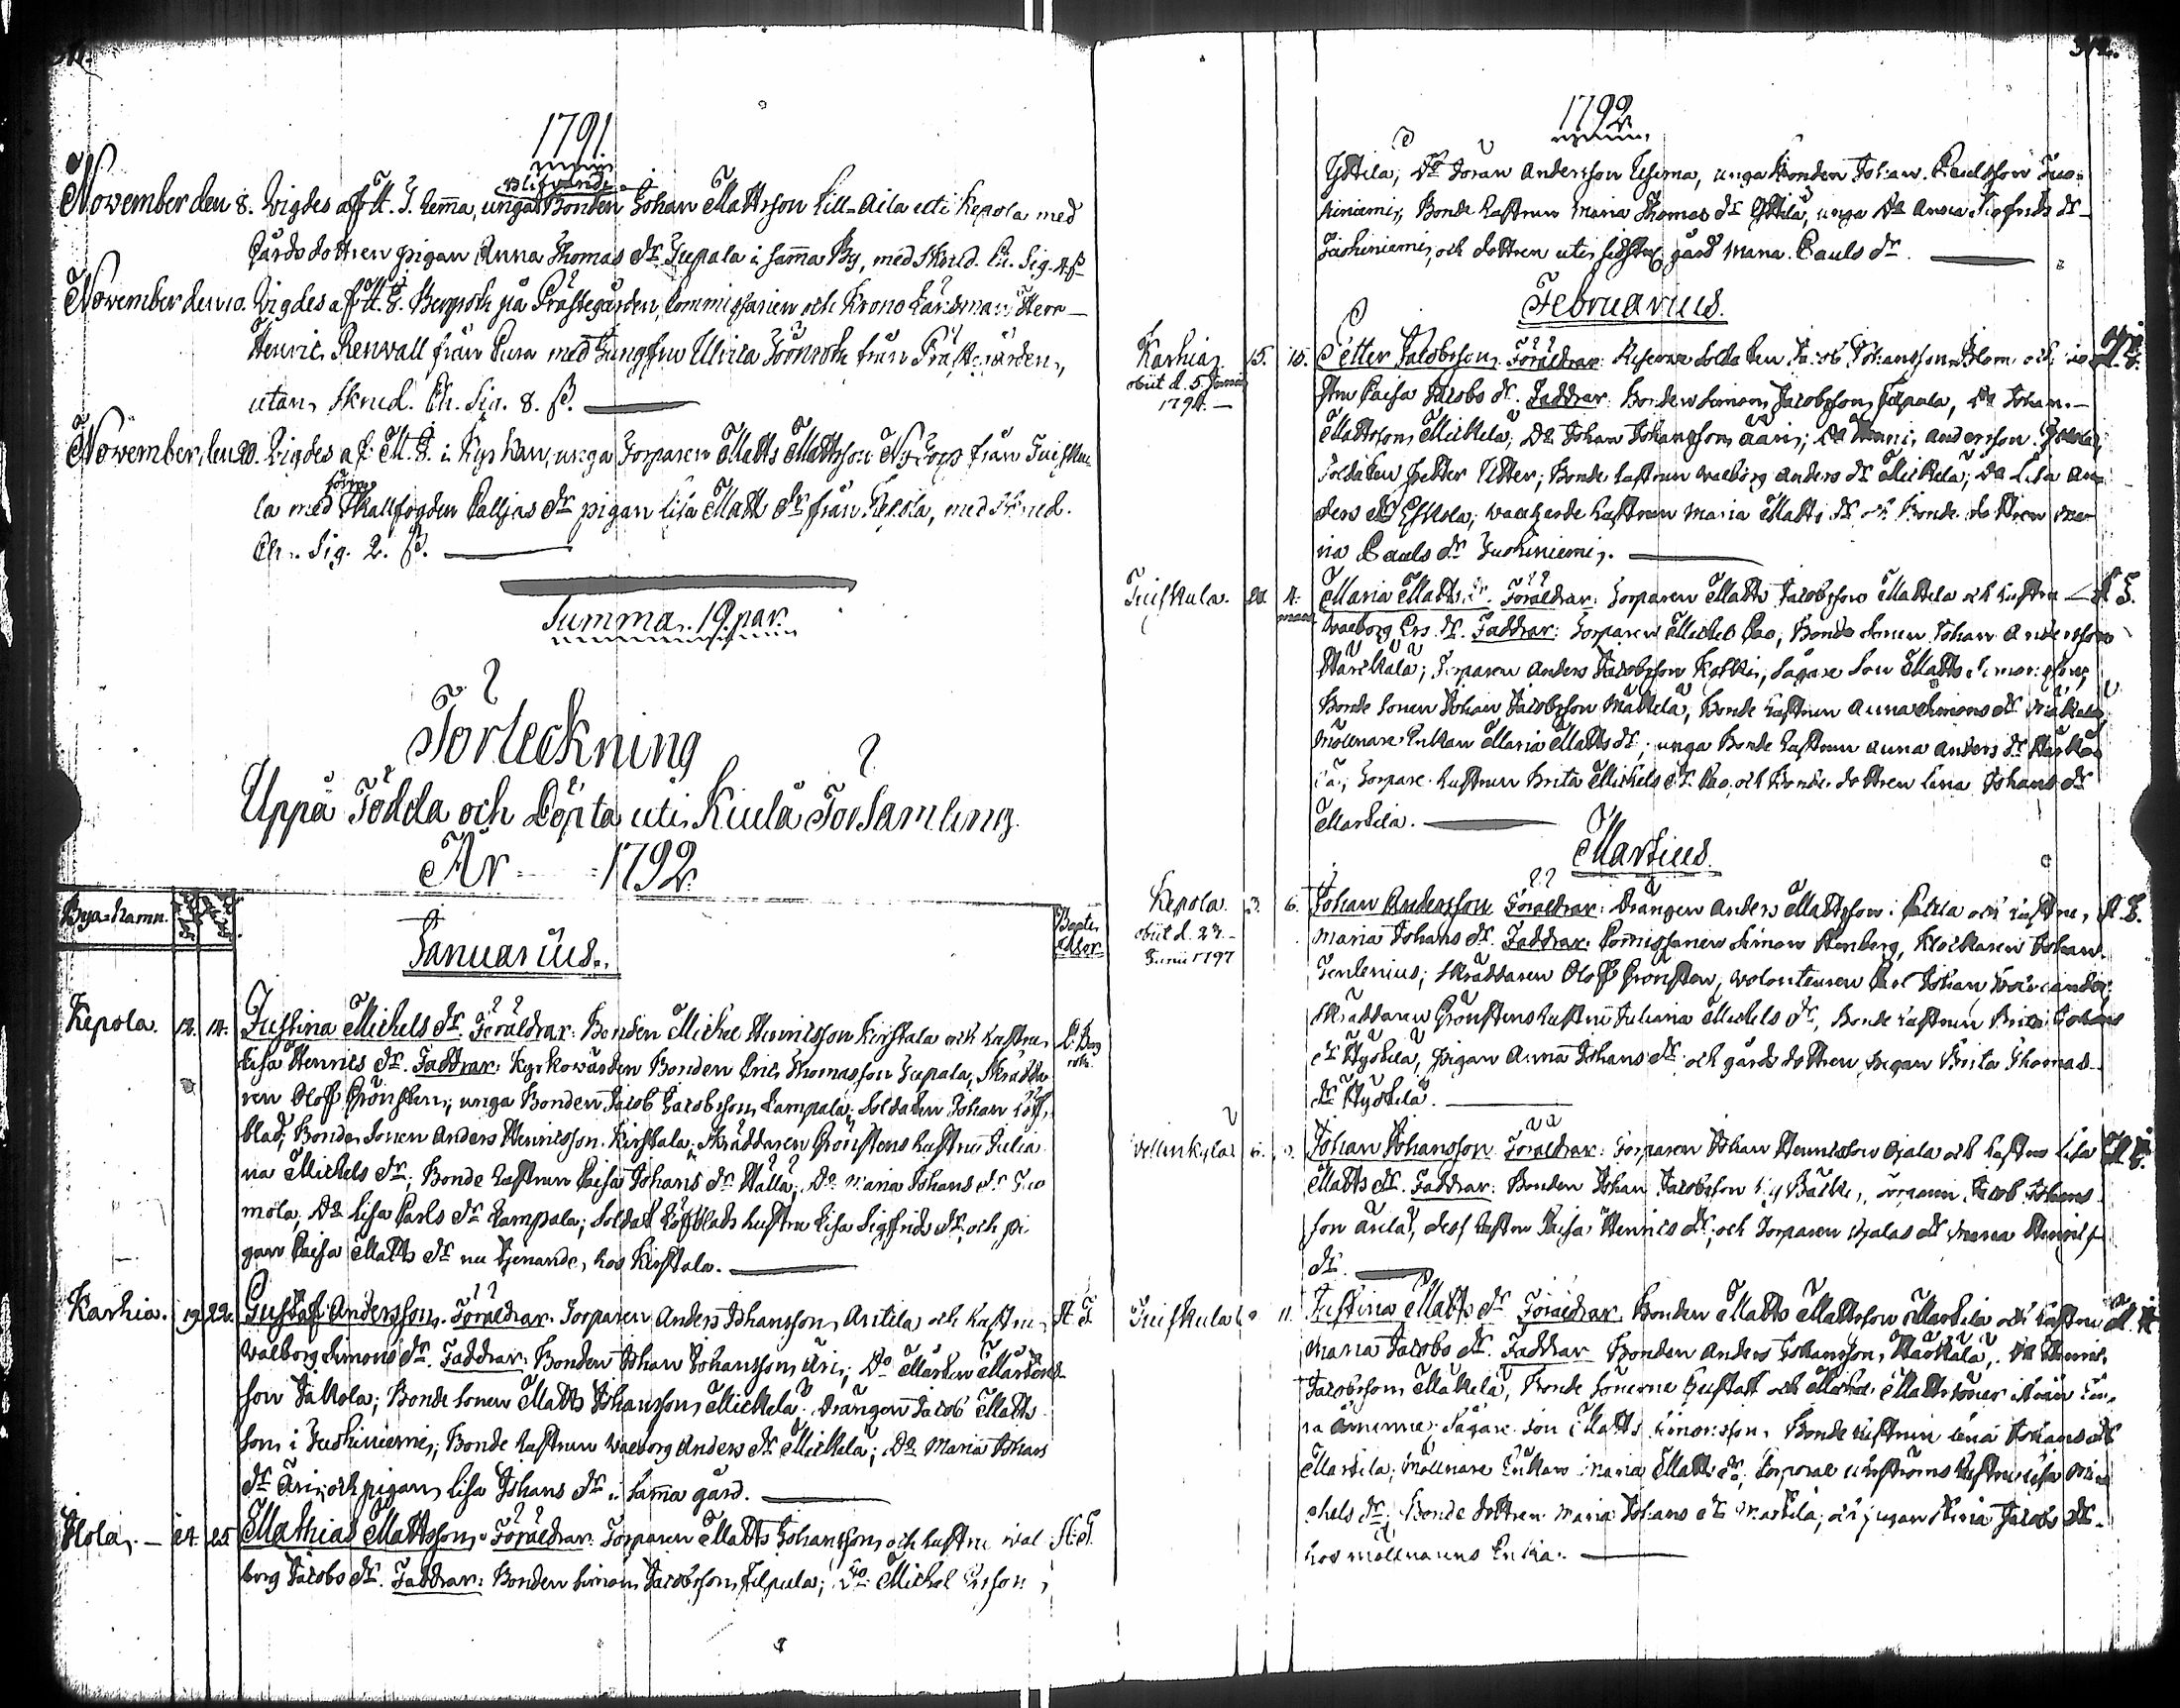 311.
1791.
blifvande
November den 8. Vigdes af H. J. Lemma, unga Bonden Johan Mattsson Lill-Aila uti Kepola med
Gårds dottren pigan Anna Thomas dr Jupala i samma By, med skrud. Ch. Sig. 4 ß
November den 10. Vigdes af H. G. Bergroth på Prästegården, Commissarien och Krono Länsman Herr
Henric Renwall från Eura med Jungfru Ulrica Törnroth från Prästegården,
utan skrud. Ch. Sig. 8. ß.
November den 20. Vigdes af M. F. i Kyrkan, unga Torparen Matts Mattsson Ny Torp från Tuisku
förra
la med Skallfogden Calljas dr pigan Lisa Matts dr från Kepola, med skrud.
Ch. Sig. 2. ß.
Summa. 19. par.
Förteckning
Uppå Födda och Döpta uti Kiula Församling
År 1792.
Bya-Namn.
Bapti
sator
Januarius.
Kepola. 12. 14. Justina Michels dr. Föräldrar: Bonden Michel Henricsson Kirstala och hustru
C. Berg
roth.
Lisa Henrics dr. Faddrar: Kyrkowärden Bonden Eric Thomasson Jupala, Skrädda
ren Oloff Grönsten; unga Bonden Jacob Jacobsson Lampala; Soldaten Johan Löf
blad; Bonde Sonen Anders Henricsson Kirstala; Skräddaren Grönstens hustru Julia
na Michels dr; Bonde hustrun Caisa Johans dr Halla; Do Maria Johans dr Tuo
mola; Do Lisa Carls dr Lampala; Soldat Löfblads hustru Lisa Sigfrids dr, och pi
gan Caisa Matts dr nu tjenande hos Kirstala.
Karhia. 19. 22. Gustaf Andersson. Föräldrar: Torparen Anders Johansson Antila och hustru
Walborg Simons dr. Faddrar: Bonden Johan Johansson Äri; Do Mårten Mårtens
son Jakola; Bonde sonen Matts Johansson Mickela; Drängen Jacob Matts
son i Juohiniemi; Bonde hustrun Walborg Anders dr Mickela; Do Maria Johans
dr Äri, och pigan Lisa Johans dr i samma gård.
Ilola. 24. 25. Mathias Mattsson. Föräldrar: Torparen Matts Johansson och hustru Wal
borg Jacobs dr. Faddrar: Bonden Simon Jacobsson Filpula; Do Michel Ersson
312.
1792.
Yttila, Do Göran Andersson Uusima, unga Bonden Johan Paulsson Juo-
hiniemi, Bonde hustrun Maria Thomas dr Yttilä, unga Do Anna Sigfrids dr
Juohiniemi, och dottren uti sidsta gård Maria Pauls dr.
Februarius.
Karhia. 15. 15. Petter Jacobsson. Föräldrar: Reserve Soldaten Jacob Johansson Blom och hu
obiit d. 5. Januarii
1794.
stru Caisa Jacobs dr. Faddrar: Bonden Simon Jacobsson Filpula, Do Johan
Mattsson Mickela; Do Johan Johansson Ääri; Do Henric Andersson
Soldaten Petter Utter; Bonde hustrun Walborg Anders dr Mickela; Do Lisa An
ders dr Eskola; hustrun Maria Matts dr och Bonde dottren Ma
ria Pauls dr Juohiniemi.
Tuiskula. 20. 4. Maria Matts dr. Föräldrar: Torparen Matts Jacobsson Mattela och hustru
Walborg Ers dr. Faddrar: Torparen Michel Pao, Bonde sonen Johan Andersson
Härckälä; Torparen Anders Jacobsson Koskis, Sågare Son Matts Simonsson,
Bonde sonen Johan Jacobsson Mäkelä, Bonde hustrun Anna Simons dr Mäkelä,
Möllnare Enkan Maria Matts dr; unga Bonde hustrun Anna Anders dr Härckä
lä; Torpare hustrun Brita Michels dr Pao, och Bonde dottren Lena Johans dr
Martila.
Martius.
Kepola. 3. 6. Johan Andersson. Föräldrar: Drängen Anders Mattsson i och hustru
obiit d. 23
Junii 1797
Maria Johans dr. Faddrar: Commissarien Simon Stenberg, Klockaren Johan
Genlenius; Skräddaren Oloff Grönsten, Wolonteuren Carl Johan
Skräddaren Grönstens hustru Juliana Michels dr, Bonde hustrun Brita Johans
dr Hyökelä, Pigan Anna Johans dr och gårds dottren pigan Brita Thomas
dr Hyökelä.
Vellinkylä 6. Johan Johansson Föräldrar: Torparen Johan Henricsson Ojala och hustru Lisa
Matts dr. Faddrar: Bonden Johan Jacobsson Torparen Jacob Johans
son Anla, dess hustru Caisa Henrics dr, och Torparen Ojalas dr Maria Henrics
dr.
Tuiskula 9. 11. Justina Matts dr Föräldrar: Bonden Matts Mattsson Martila och hustru
Maria Jacobs dr. Faddrar: Bonden Anders Johansson Härkälä, Do Henric
Jacobsson Mäkelä, Bonde Sönerne Gustaff och Michel Mattssöner ifrån
Sågare son Matts Simonsson, Bonde hustrun Lena Johans dr
Martila; Möllnare Enkan Maria Matts dr; Corporal hustru Lisa Mi
chels dr; Bonde dottren Maria Johans dr Martila, och pigan Stina Jacobs dr
hos möllnarens Enka.